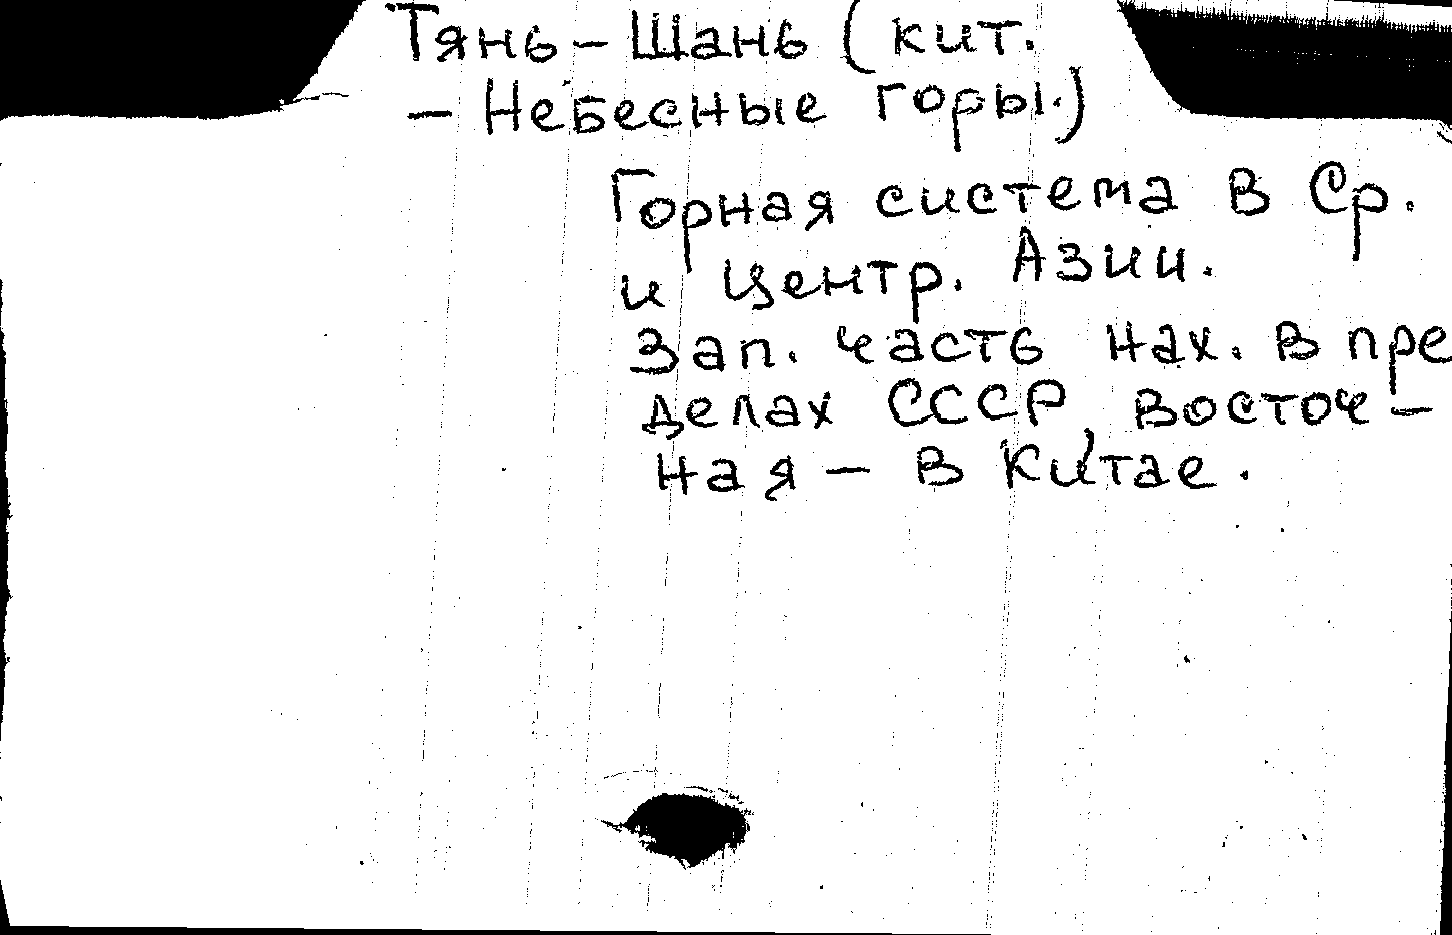 Тянь-Шань (кит.
- Небесные горы.)
Горная система в Ср.
и Центр. Азии.
Зап. часть нах. в пре
делах СССР, восточ-
ная - в Китае.